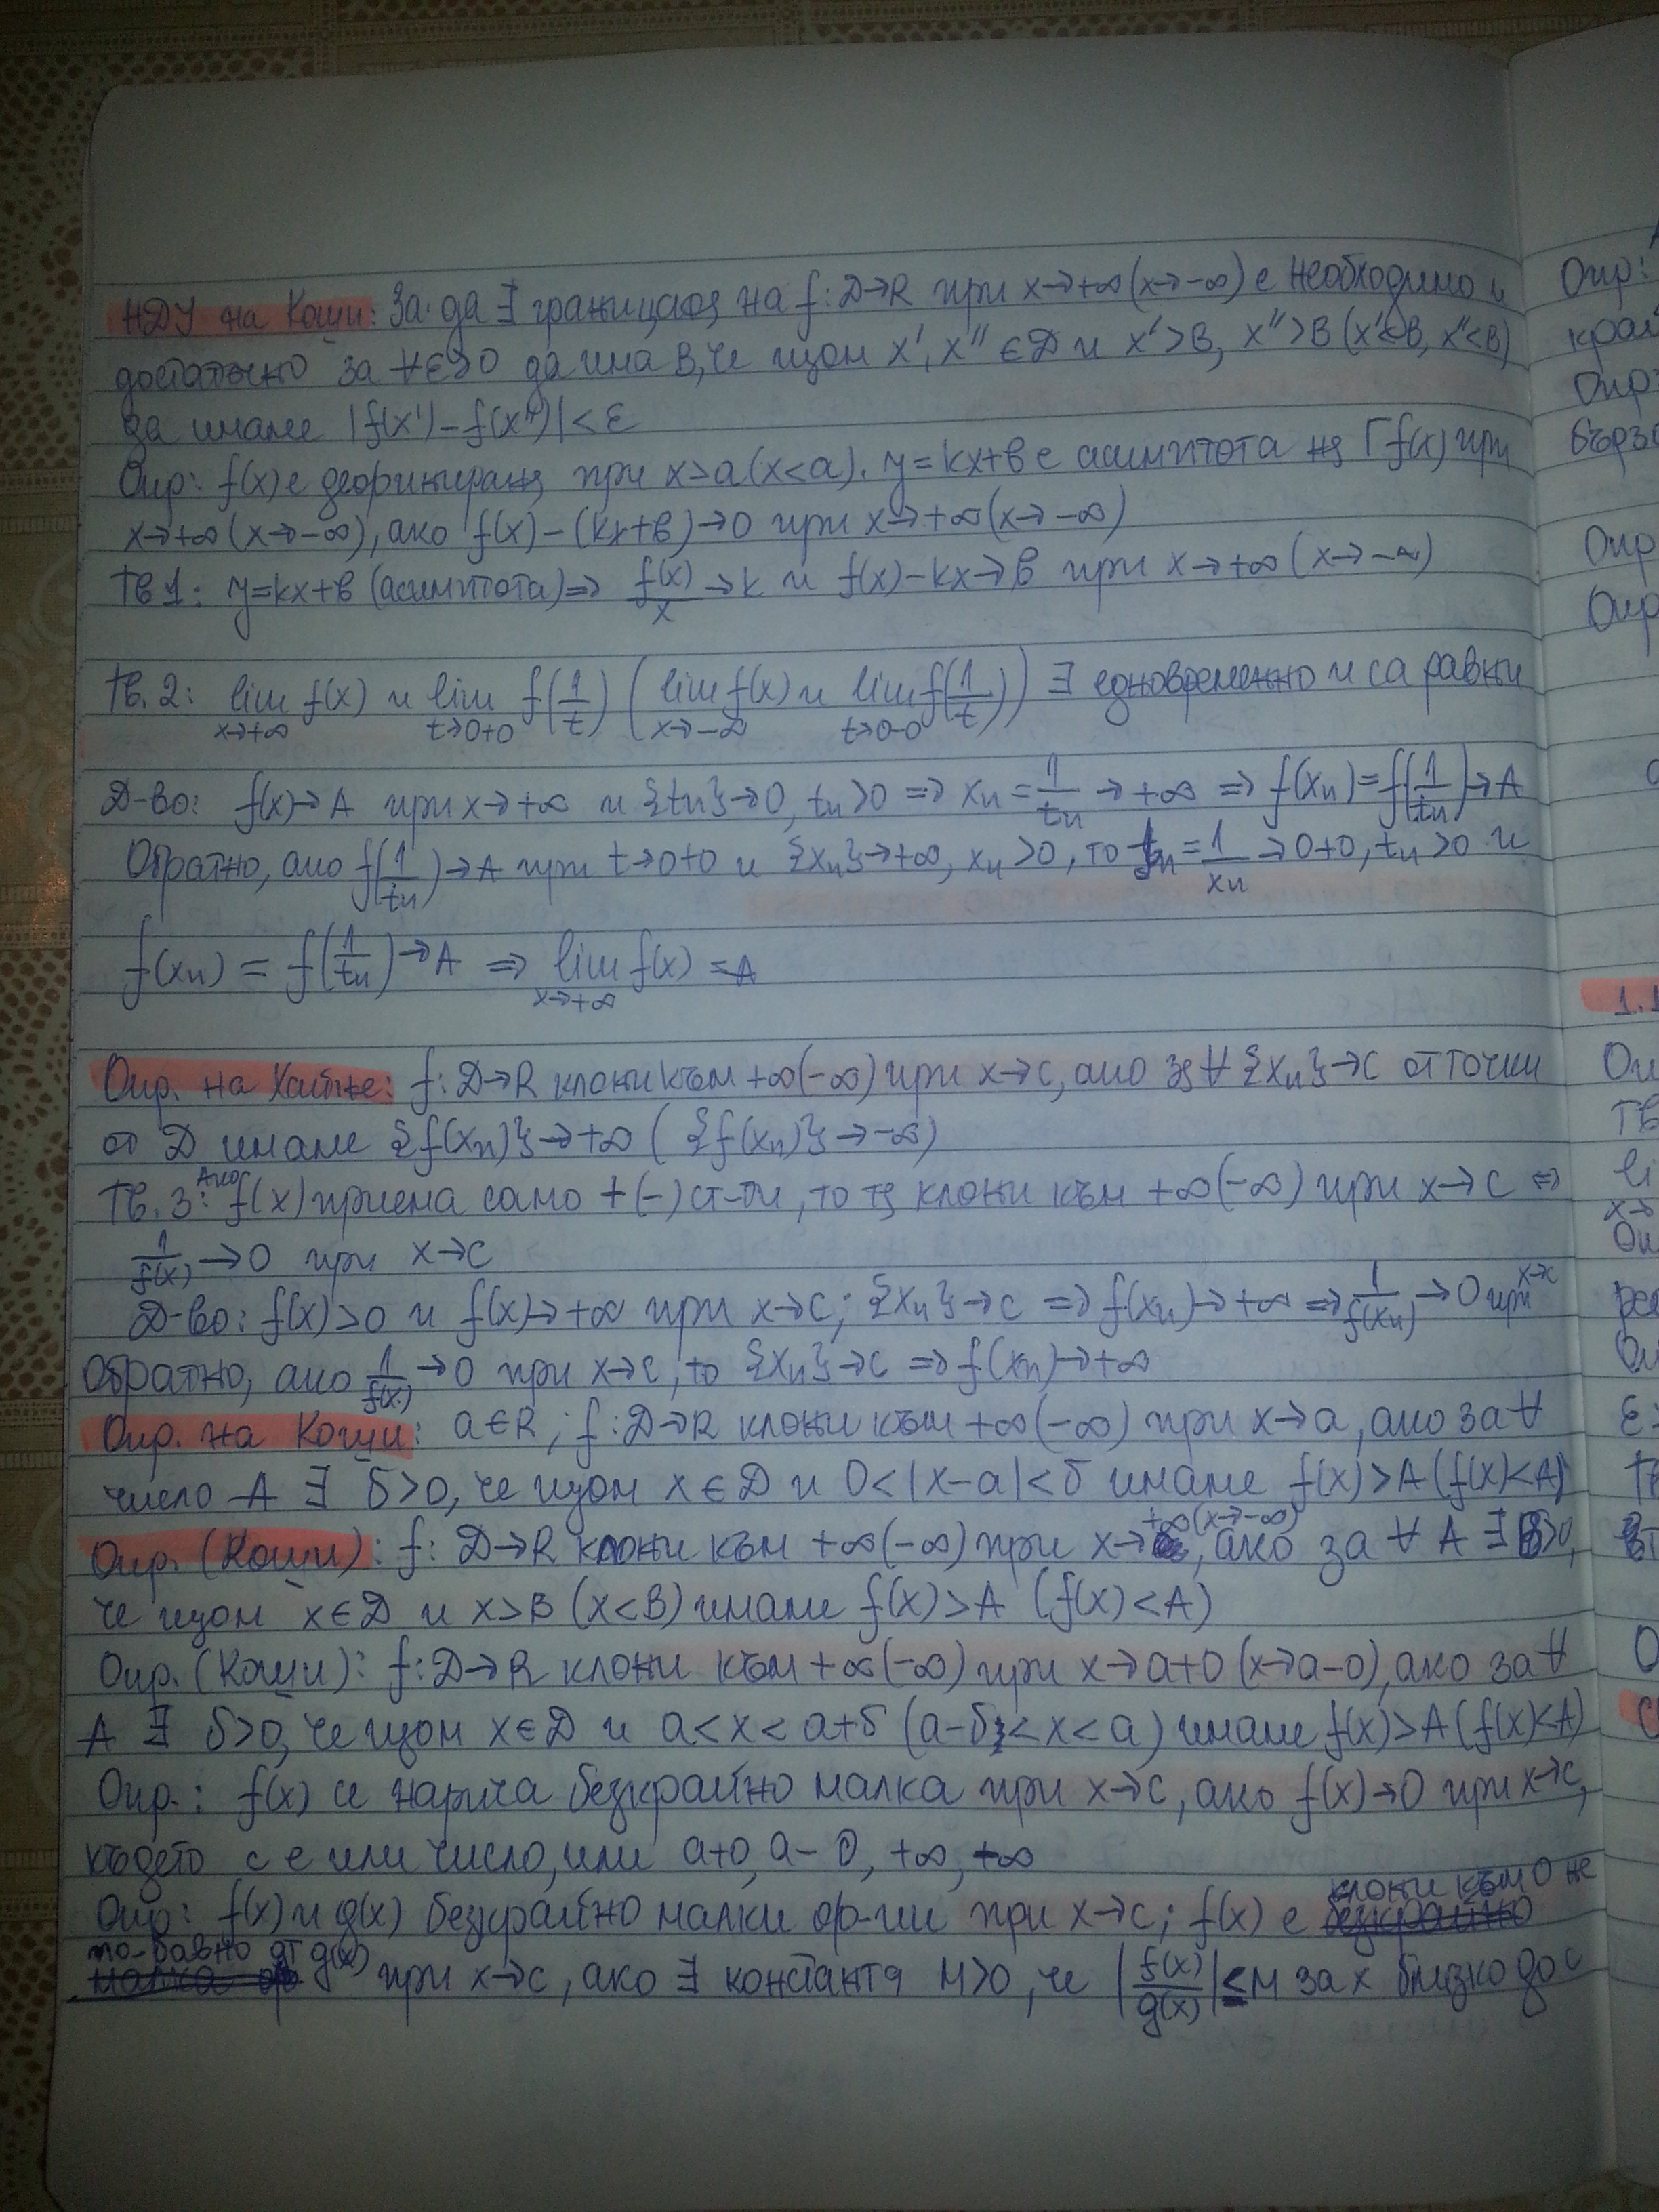 НДУ на Коши: За да ∃ границата на f: D→R при x→+∞ (x→-∞) е необходимо и
достатъчно за ∀ε>0 да има B, че щом x', x'' ∈ D и x'>B, x''>B (x'<B, x''<B)
да имаме |f(x') - f(x'')| < ε
Опр: f(x) е дефинирана при x>a (x<a). y=kx+b е асимптота на Γf(x) при
x→+∞ (x→-∞), ако f(x)-(kx+b)→0 при x→+∞ (x→-∞)
Тв 1: y=kx+b (асимптота) => f(x)/x →k и f(x)-kx→b при x→+∞ (x→-∞)
Тв. 2: lim x→+∞ f(x) и lim t→0+0 f(1/t) (lim x→-∞ f(x) и lim t→0-0 f(1/t)) ∃ едновременно и са равни
Д-во: f(x)→A при x→+∞ и {tn}→0, tn>0 => xn = 1/tn → +∞ => f(xn)=f(1/tn)→A
Обратно, ако f(1/tn)→A при t→0+0 и {xn}→+∞, xn>0, то tn = 1/xn → 0+0, tn>0 и
f(xn) = f(1/tn) →A => lim x→+∞ f(x) = A
Опр. на Хайне: f: D→R клони към +∞ (-∞) при x→c, ако за ∀ {xn}→c от точки
от D имаме {f(xn)}→+∞ ({f(xn)}→-∞)
Тв. 3: Ако f(x) приема само + (-) ст-ти, то тя клони към +∞ (-∞) при x→c <=>
1/f(x) →0 при x→c
Д-во: f(x)>0 и f(x)→+∞ при x→c; {xn}→c => f(xn)→+∞ => 1/f(xn) →0 при x→c
Обратно, ако 1/f(x) →0 при x→c, то {xn}→c => f(xn)→+∞
Опр. на Коши: a∈R; f: D→R клони към +∞ (-∞) при x→a, ако за ∀
число A ∃ δ>0, че щом x∈D и 0<|x-a|<δ имаме f(x)>A (f(x)<A)
Опр. (Коши): f: D→R клони към +∞ (-∞) при x→ +∞ (x→-∞), ако за ∀ A ∃ B>0,
че щом x∈D и x>B (x<B) имаме f(x)>A (f(x)<A)
Опр. (Коши): f: D→R клони към +∞ (-∞) при x→a+0 (x→a-0), ако за ∀
A ∃ δ>0, че щом x∈D и a<x<a+δ (a-δ<x<a) имаме f(x)>A (f(x)<A)
Опр.: f(x) се нарича безкрайно малка при x→c, ако f(x)→0 при x→c,
където c е или число, или a+0, a-0, +∞, +∞
Опр: f(x) и g(x) безкрайно малки ф-ии при x→c; f(x) е клони към 0 не
по-бавно от g(x) при x→c, ако ∃ константа M>0, че |f(x)/g(x)| ≤ M за x близко до c
Опр:
край
Опр:
бързо
Опр
Опр
1.1